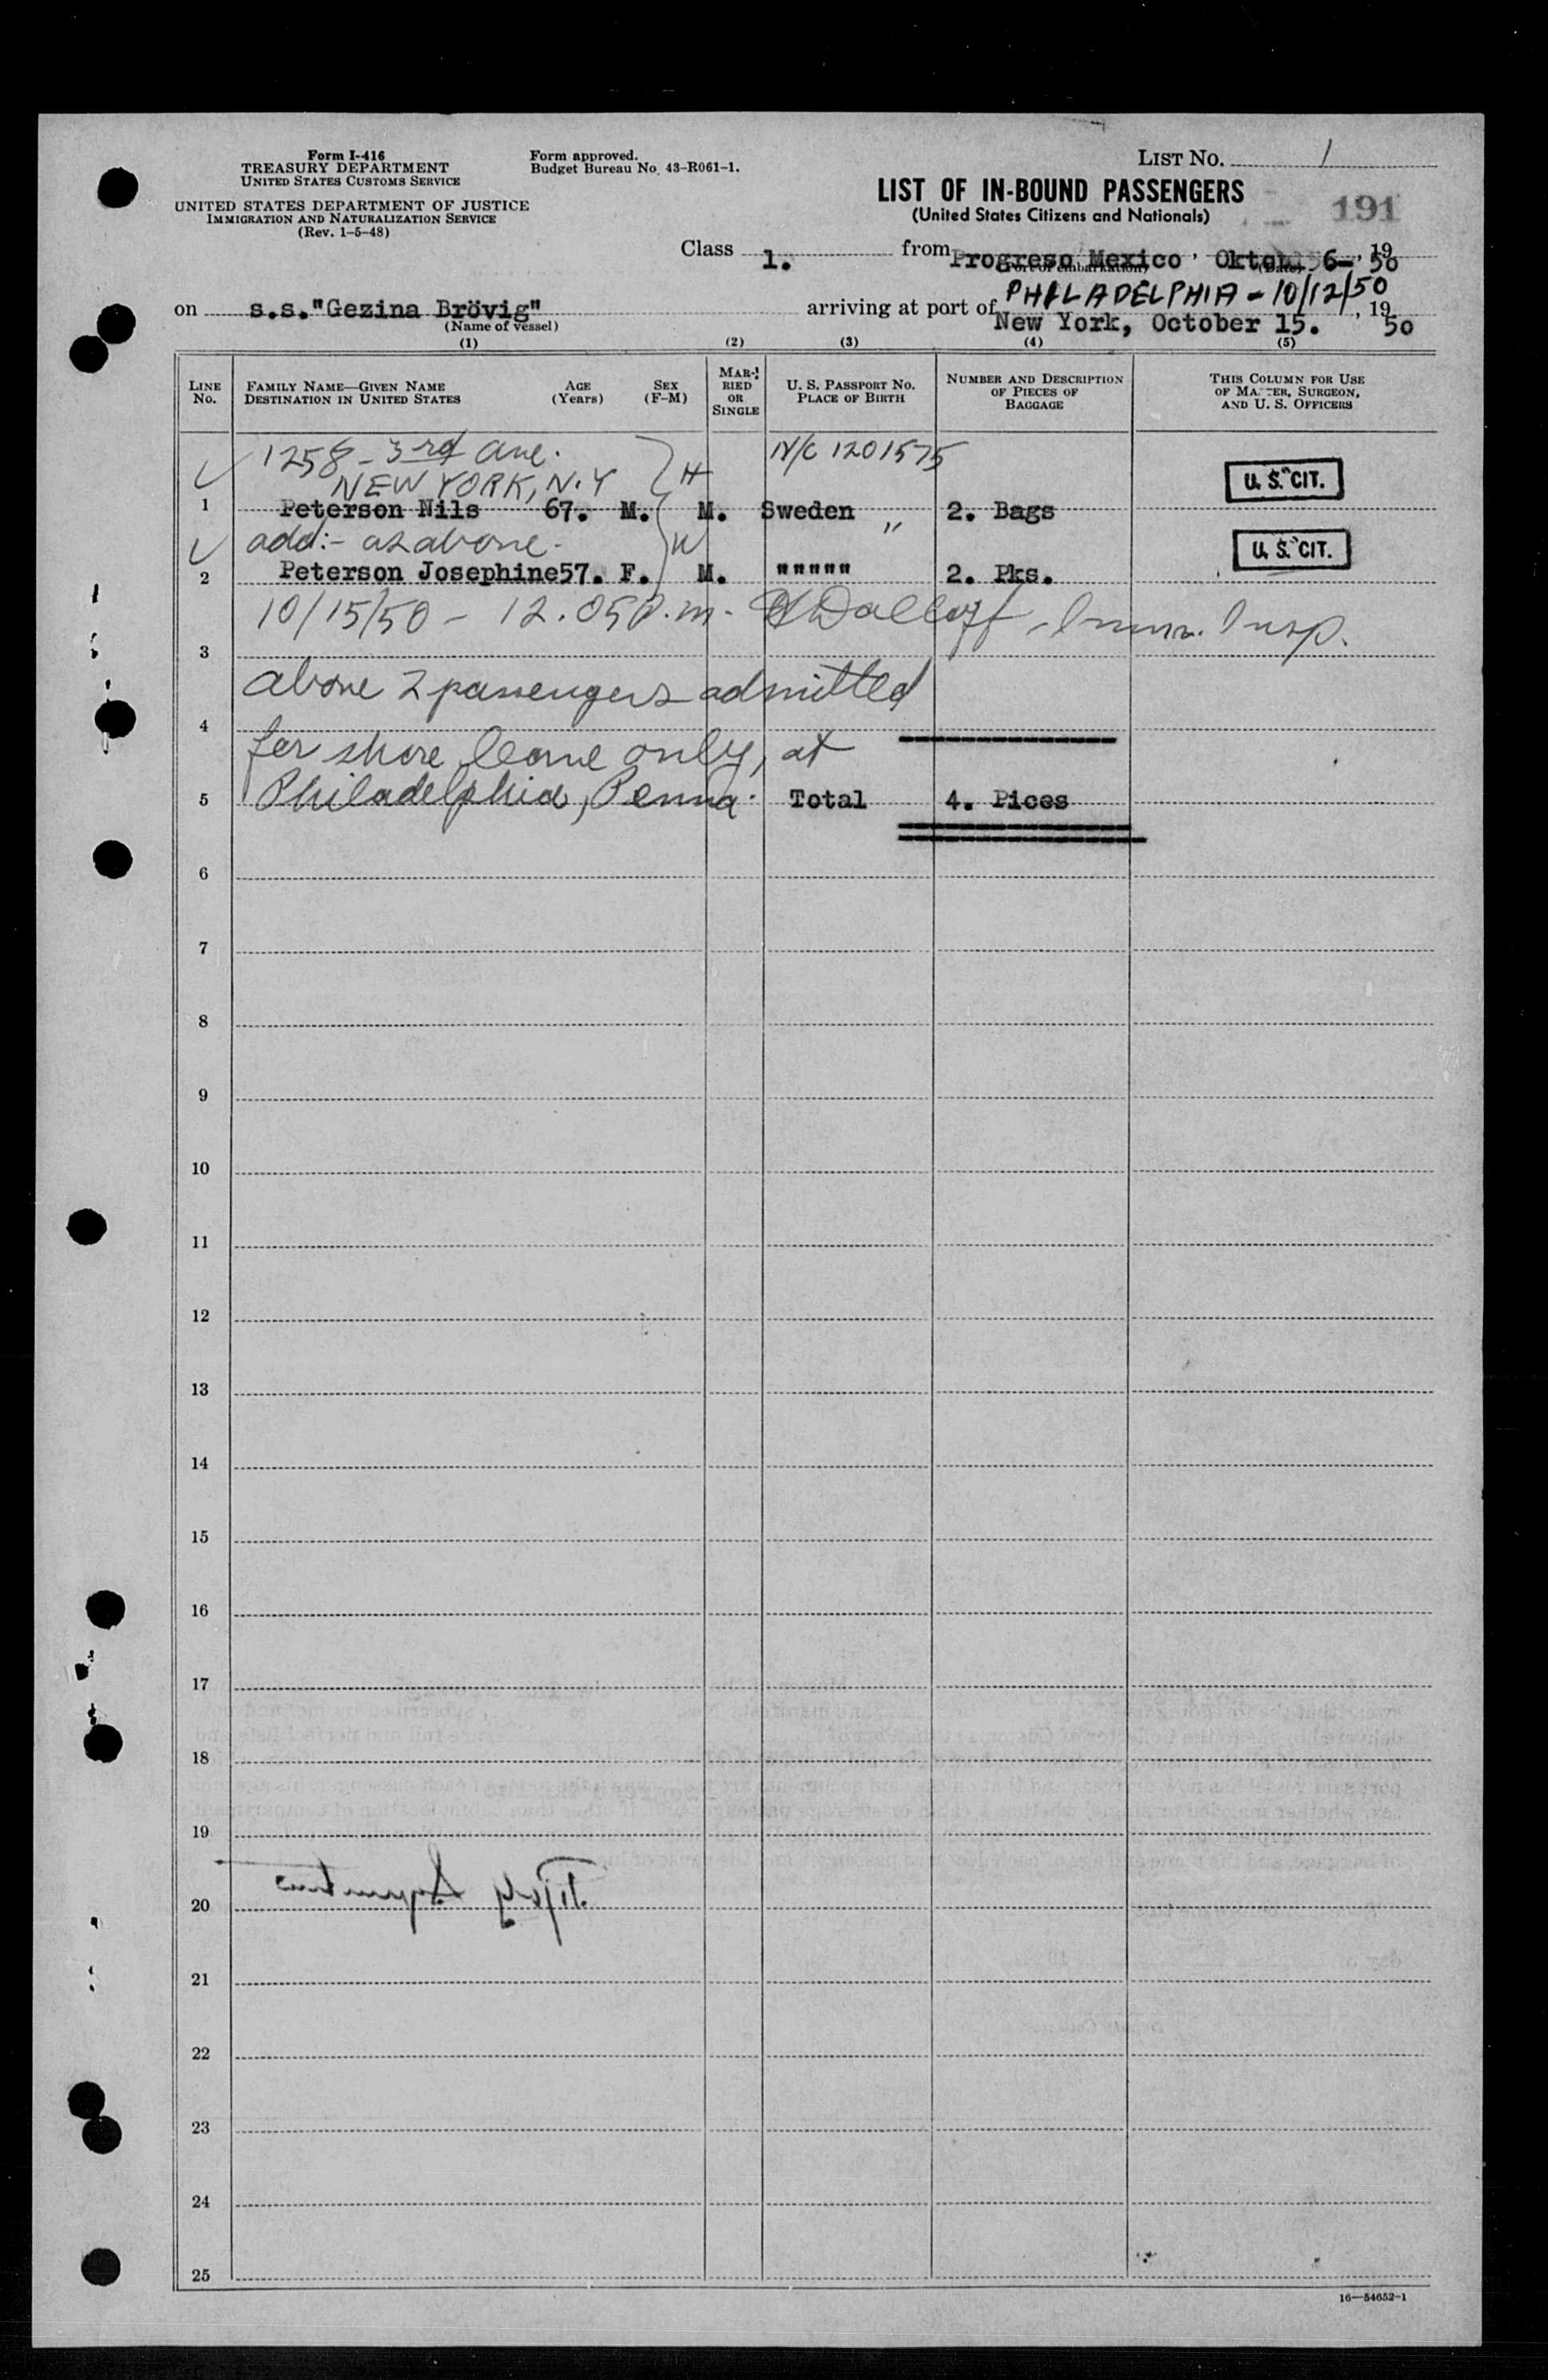 Form I-416
TREASURY DEPARTMENT
UNITED STATES CUSTOMS SERVICE
UNITED STATES DEPARTMENT OF JUSTICE
IMMIGRATION AND NATURALIZATION SERVICE
(Rev. 1-5-48)
Form approved.
Budget Bureau No. 43-R061-1.
LIST NO. 1
LIST OF IN-BOUND PASSENGERS
(United States Citizens and Nationals)
191
Class 1. from Progreso Mexico, 6-, 19 50
on s.s."Gezina Brövig"
(Name of vessel)
PHILADELPHIA - 10/12/50
arriving at port of New York, October 15., 19 50
(1) (2) (3) (4) (5)
LINE NO.
FAMILY NAME—GIVEN NAME
DESTINATION IN UNITED STATES
AGE (Years)
SEX (F-M)
MARRIED OR SINGLE
U. S. PASSPORT NO.
PLACE OF BIRTH
NUMBER AND DESCRIPTION OF PIECES OF BAGGAGE
THIS COLUMN FOR USE OF MASTER, SURGEON, AND U. S. OFFICERS
1258 - 3rd Ave. N/C 1201575
NEW YORK, N.Y H U. S. CIT.
1 Peterson Nils 67. M. M. Sweden 2. Bags
add:- as above - W " U. S. CIT.
2 Peterson Josephine 57. F. M. """"" 2. Pks.
10/15/50 - 12.05 P.m. Imm. Insp.
3
above 2 passengers admitted
4
for shore leave only, at
5 Philadelphia, Penna. Total 4. Pices
6
7
8
9
10
11
12
13
14
15
16
17
18
19
20
21
22
23
24
25
16—54652-1